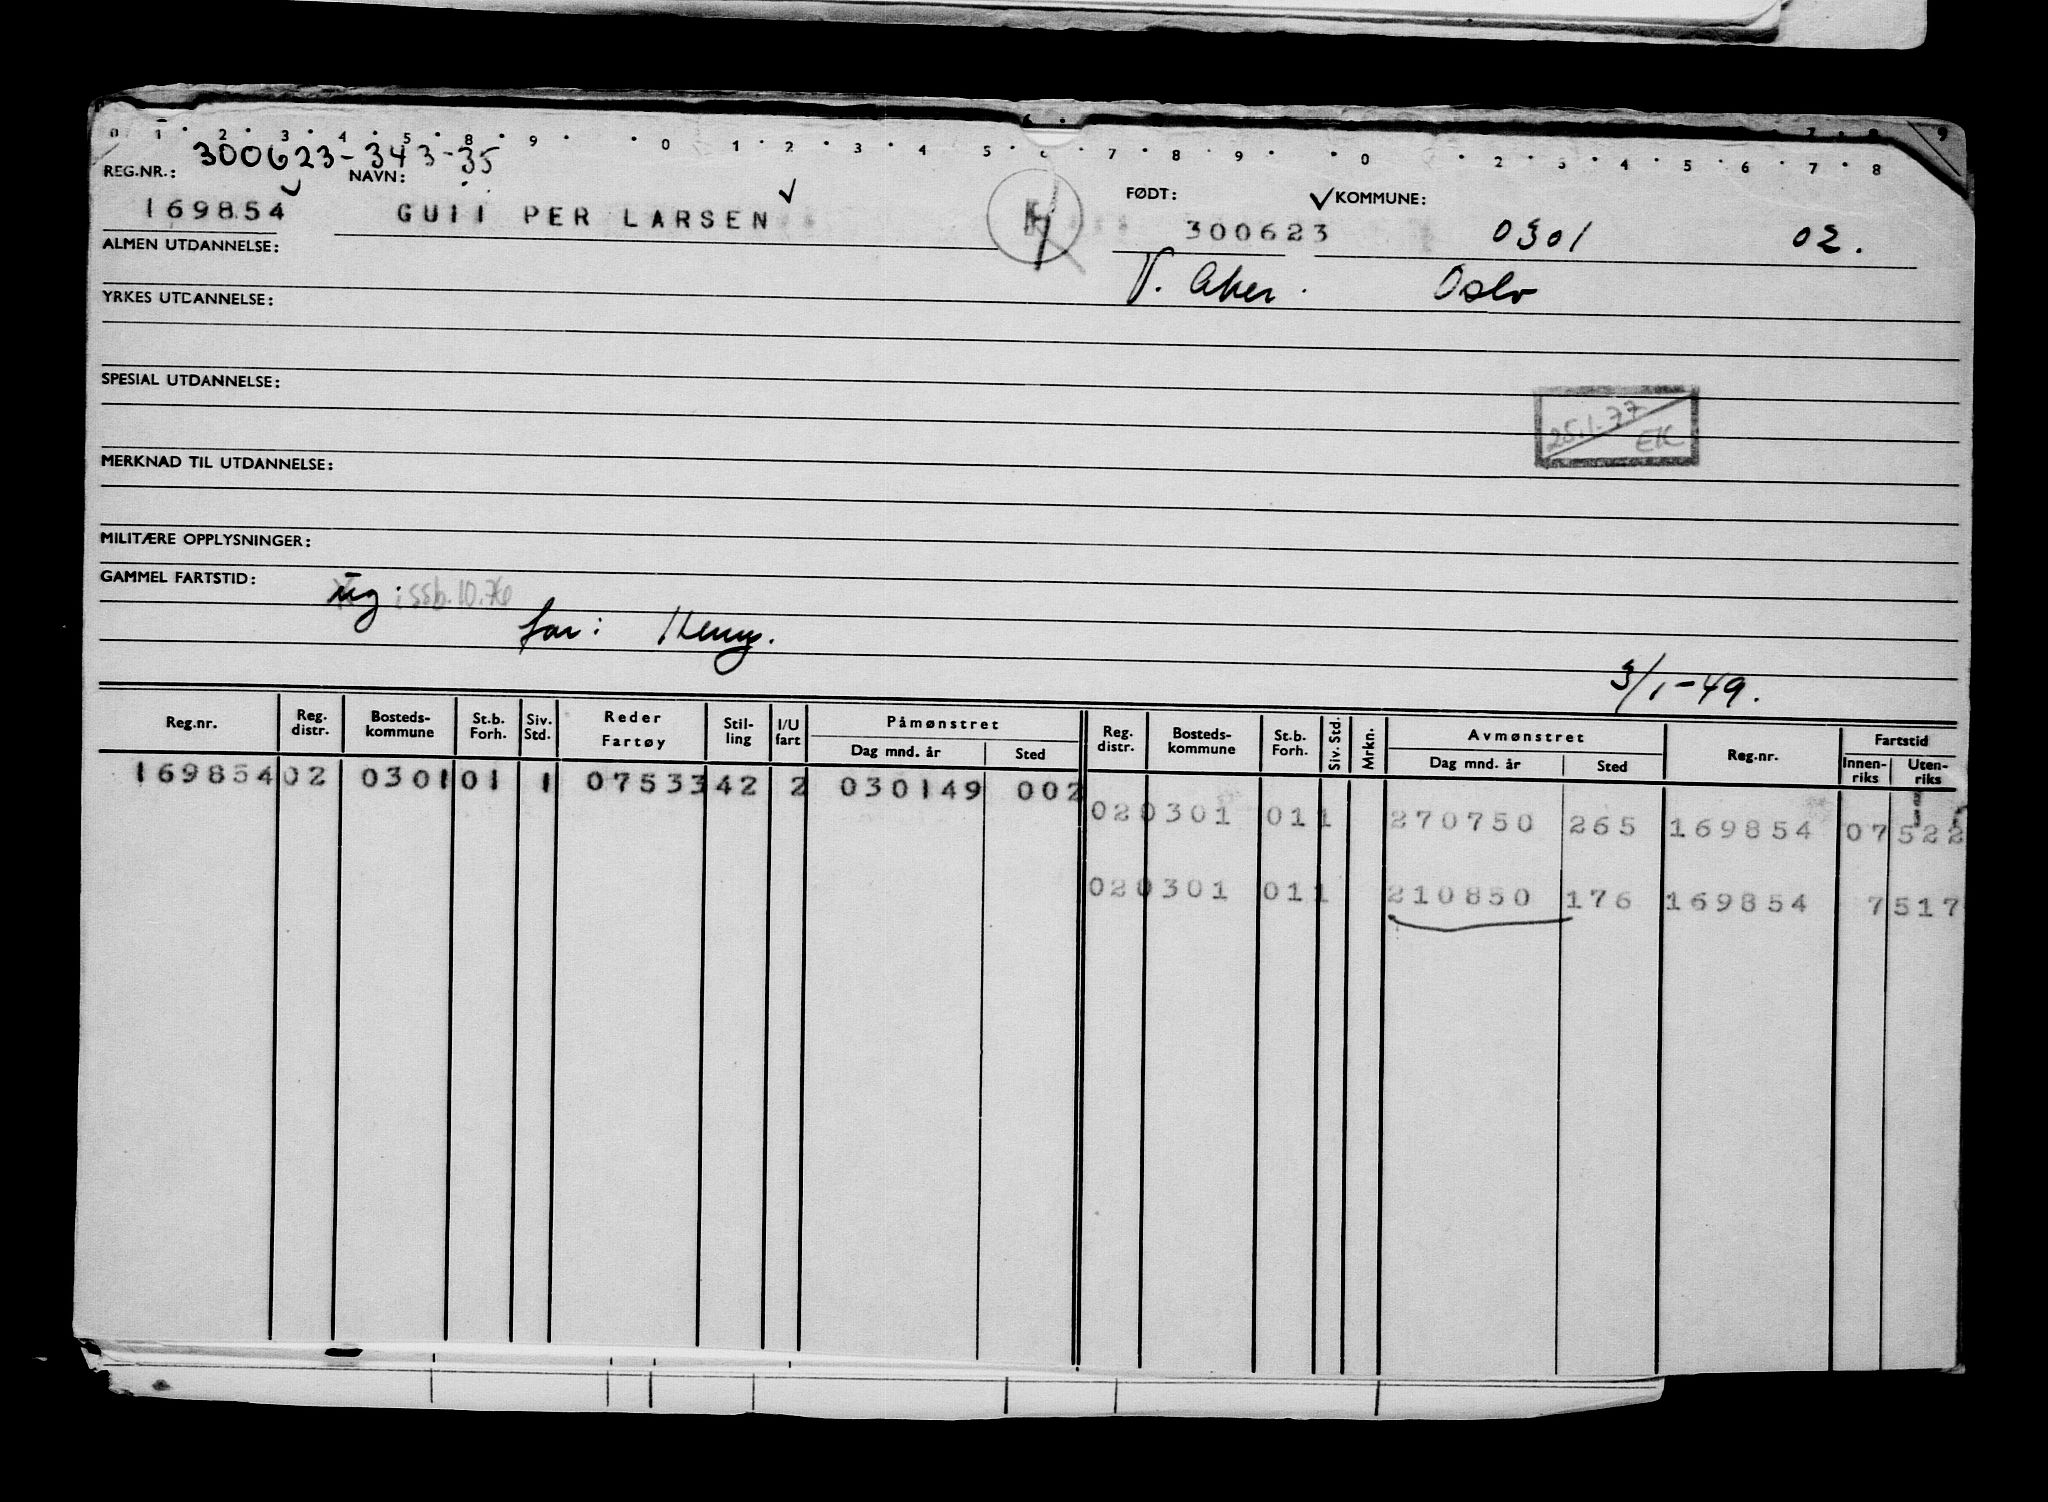 300623-343-35
REG.NR.: NAVN: FØDT: KOMMUNE:
169854 GUII PER LARSEN 300623 0301 02.
ALMEN UTDANNELSE: V. Aker. Oslo
YRKES UTDANNELSE:
SPESIAL UTDANNELSE:
25.1.77 EK
MERKNAD TIL UTDANNELSE:
MILITÆRE OPPLYSNINGER:
GAMMEL FARTSTID:
ug: ssb.10.76
far: Henry.
3/1-49.
Reg.nr. Reg. distr. Bosteds-kommune St.b. Forh. Siv. Std. Reder Fartøy Stil-ling I/U fart Påmønstret Dag mnd. år Sted Reg. distr. Bosteds-kommune St.b. Forh. Siv. Std. Mrkn. Avmønstret Dag mnd. år Sted Reg.nr. Fartstid Innen-riks Uten-riks
169854 02 0301 01 1 07533 42 2 030149 002
02 0301 01 1 270750 265 169854 07 522
02 0301 01 1 210850 176 169854 7 517